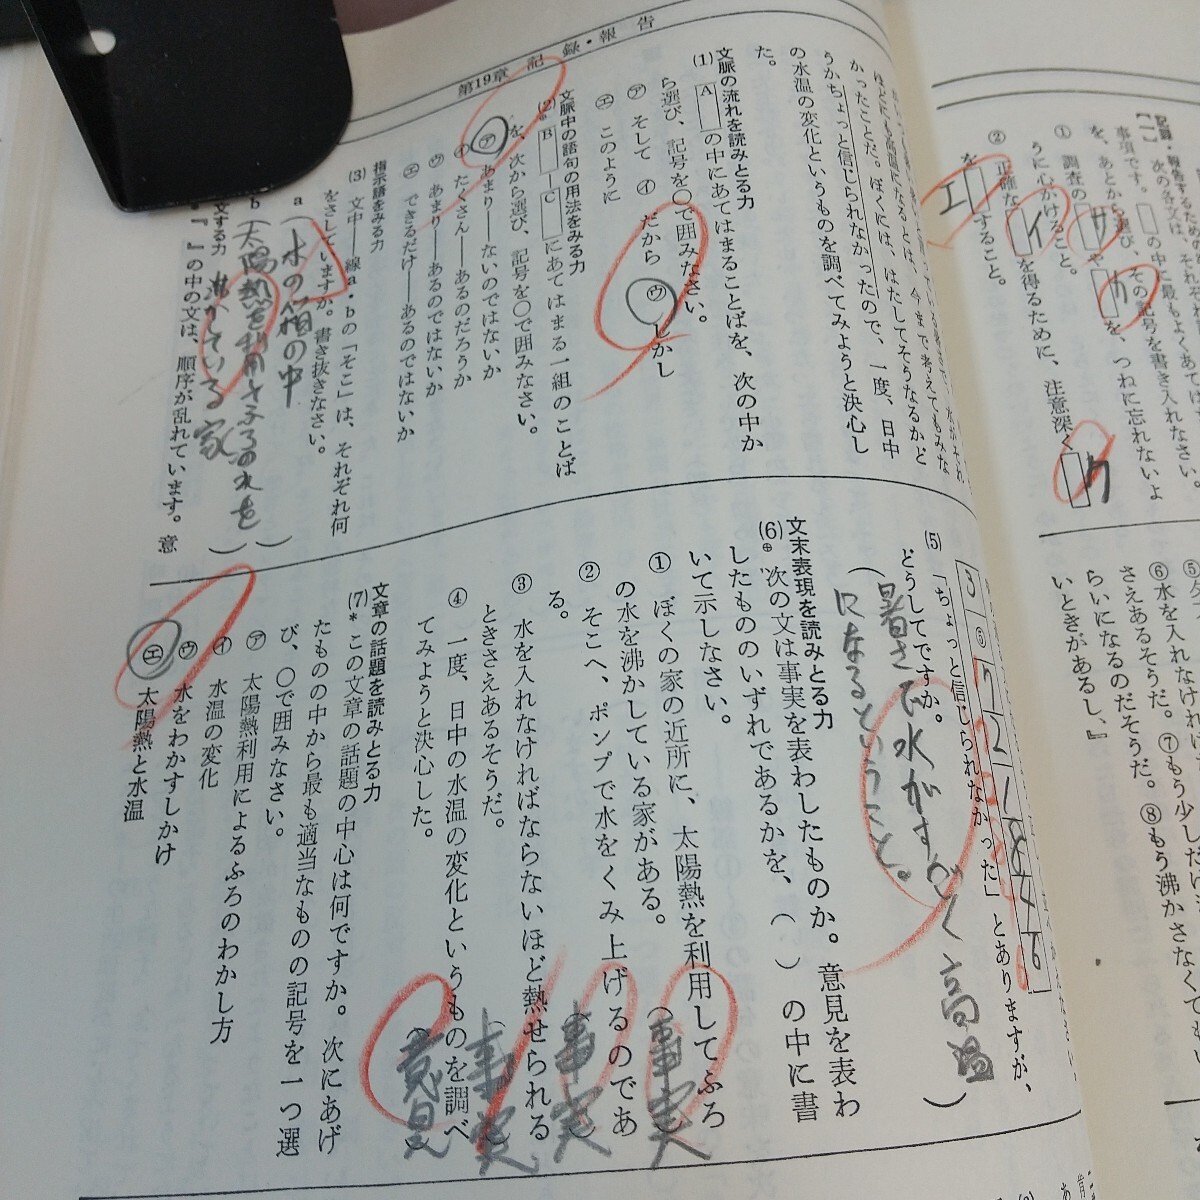 第19章 記録・報告
記録・報告するため
事項です。□の中に最もよくあては
を、あとから選び、その記号を書き入れなさい。
① 調査の サ や カ を、つねに忘れないよ
うに心がけること。
② 正確な イ を得るために、注意深く ク
を エ すること。
ほどにも高温になるとは、今まで考えてもみな
かったことだ。ぼくには、はたしてそうなるかど
うかちょっと信じられなかったので、一度、日中
の水温の変化というものを調べてみようと決心し
た。
文脈の流れを読みとる力
(1) A の中にあてはまることばを、次の中か
ら選び、記号を○で囲みなさい。
㋐ そして ㋑ だから ㋒ しかし
㋓ このように
文脈中の語句の用法をみる力
(2) B ― C にあてはまる一組のことば
を、次から選び、記号を○で囲みなさい。
㋐ あまり――ないのではないか
㋑ たくさん――あるのだろうか
㋒ あまり――あるのではないか
㋓ できるだけ――あるのではないか
指示語をみる力
(3) 文中――線a・bの「そこ」は、それぞれ何
をさしていますか。書き抜きなさい。
a (水の箱の中)
b (太陽熱を利用してふろの水を
沸かしている家)
文する力
『 』の中の文は、順序が乱れています。意
⑥水を入れなければ
さえあるそうだ。⑦もう少しだけ
らいになるのだそうだ。⑧もう沸かさなくて
いいときがあるし、』
3 ⑤ 7 2 1 8 4 6
(5) 「ちょっと信じられなかった」とありますが、
どうしてですか。
(暑さで水がすごく高温
になるということ。)
文末表現を読みとる力
(6) 次の文は事実を表わしたものか。意見を表わ
したもののいずれであるかを、( )の中に書
いて示しなさい。
① ぼくの家の近所に、太陽熱を利用してふろ
の水を沸かしている家がある。 (事実)
② そこへ、ポンプで水をくみ上げるのであ
る。 (事実)
③ 水を入れなければならないほど熱せられる
ときさえあるそうだ。 (事実)
④ 一度、日中の水温の変化というものを調べ
てみようと決心した。 (意見)
文章の話題を読みとる力
(7)* この文章の話題の中心は何ですか。次にあげ
たものの中から最も適当なものの記号を一つ選
び、○で囲みなさい。
㋐ 太陽熱利用によるふろのわかし方
㋑ 水温の変化
㋒ 水をわかすしかけ
㋓ 太陽熱と水温